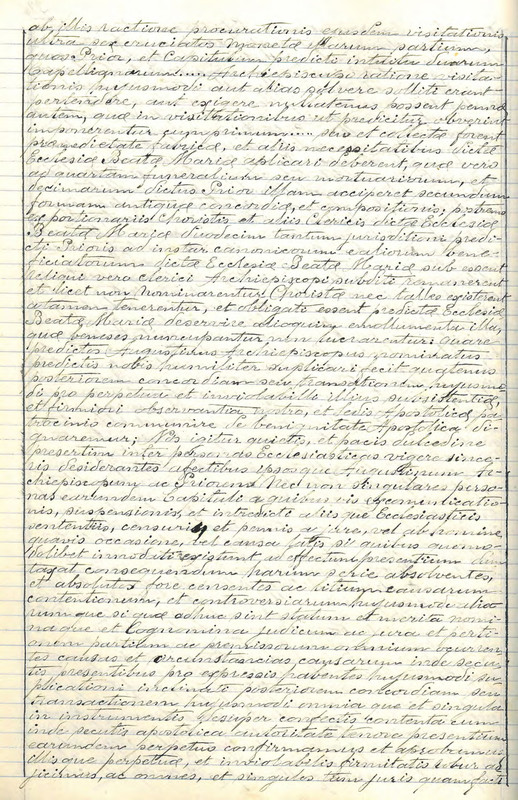 ab illis ractione procurationis ejusdem visitationis
ultra sex cruciatos monetæ illarum partium,
quos Prior, et Capitulum predicti intuitu duarum
Capellaniarum.... Archiepiscopo ratione visita-
tionis hujusmodi aut alias solvere solliti erant
pertendere, aut exigere nullatenus possent penæ
autem, quæ in visitationibus ut predicitur obvenirint
imponerentur cumprimum... seu et collectæ forent
pro medietate fabricæ, et aliis necessitatibus dictæ
Ecclesiæ Beatæ Mariæ aplicari deberent, quæ vero
ad quartam funeralium seu mortuariorum, et
decimarum dictus Prior illam acciperet secundum
formam antiquæ concordiæ, et compositionis; postremo
ex portionariis Choristis et aliis Clericis dictæ Ecclesiæ
Beatæ Mariæ duodecim tantum jurisditioni predi-
cti Prioris ad instar canonicorum eatiorum bene-
ficiatorum dictæ Ecclesiæ Beatæ Mariæ sub essent
reliqui vero clerici Archiepiscopi subditi remanerent
et licet non nominarentur Choristæ nec talles existerent
atamen tenerentur, et obligati essent predictæ Ecclesiæ
Beatæ Mariæ deservire alioquim emollumenta illa,
quæ beneses nuncupantur non lucrarentur: quare
predictus Augustinus Archiepiscopus nominatus
predictis nobis humiliter suplicari fecit quatenus
posteriorem concordiam seu transactionem hujusmo-
di pro perpetua et inviolabille illius subsistentia,
et firmiori observantia nostro, et sedis Apostolicæ pa-
trocinis communire de benignitate Apostolica di-
gnaremur; Nos igitur quietis, et pacis dulcedine
presertim inter personas Ecclesiasticas vigere since-
ris desiderantes afectibus ipsosque Augustinum Ar-
chiepiscopum ac Priorem nec non singulares perso-
nas earumdem Capituli a quibusvis excomenicatio-
nis, suspensionis, et intredicti aliisque Ecclesiasticis
sententiis, censuris, et pennis a jure, vel ab homine
quavis occasione, vel causa latis si quibus quomo-
dolibet innodati existunt ad effectum presentium dum
taxat consequendum harum serie absolventes,
et absolutos fore censentes ac litium causarum
contentionum, et controversiarum hujusmodi alia
rumque si quæ adhuc sint statum et merita nomi-
naque et Cognomina judicum ac jura et perti-
onem partium ac premissorum omnium ocurren-
tes causas et circunstancias causarum inde secu-
tis presentibus pro expressis habentes hujusmodi su-
plicationi inclinati posteriorem concordiam seu
transactionem hujusmodi omnia que et singula
in instrumentis desuper confectis contenta cum
inde secutis apostolica autoritate tenore presentium
earundem perpetuo confirmamus et absobumus
illisque perpetuæ, et inviolabilis firmitatis robur ad-
jicimus, ac omnes, et singulos tam juris quam facti